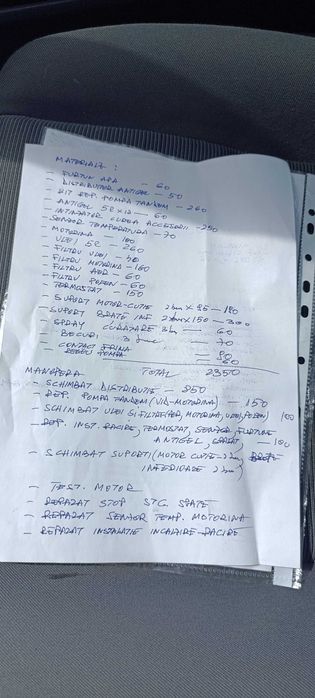 MATERIALE :
- FURTUN APA - 60
- DISTRIBUITOR ANTIGEL - 50
- KIT REP. POMPA TANDEM - 260
- ANTIGEL 5L x 12 - 60
- INTINZATOR CUREA ACCESORII - 250
- SENZOR TEMPERATURA - 70
- MOTORINA - 100
- ULEI 5L - 260
- FILTRU ULEI - 40
- FILTRU MOTORINA - 160
- FILTRU AER - 60
- FILTRU POLEN - 60
- TERMOSTAT - 150
- SUPORT MOTOR-CUTIE 2buc x 95 - 190
- SUPORT BRATE INF 2buc x 150 - 300
- SPRAY CURATARE 3buc - 60
- BECURI 3 buc - 70
- CONTACT FRINA
REGLU POMPA
TOTAL 2350
MANOPERA
- SCHIMBAT DISTRIBUTIE - 850
- REP. POMPA TANDEM (VID-MOTORINA) - 150
- SCHIMBAT ULEI SI FILTRE (AER, MOTORINA, ULEI, POLEN) 100
- REP. INST. RACIRE, TERMOSTAT, SENZOR, FURTUNE
ANTIGEL, - 180
- SCHIMBAT SUPORTI (MOTOR CUTIE-2buc,
INFERIOARE 2buc)
- TEST. MOTOR
- REPARAT STOP STG. SPATE
- REPARAT SENZOR TEMP. MOTORINA
- REPARAT INSTALATIE INCALZIRE-RACIRE